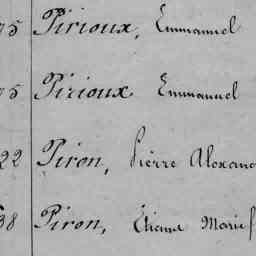 75 Pirioux, Emmanuel
75 Pirioux Emmanuel
22 Piron, Pierre Alexand
38 Piron, Etienne Marie